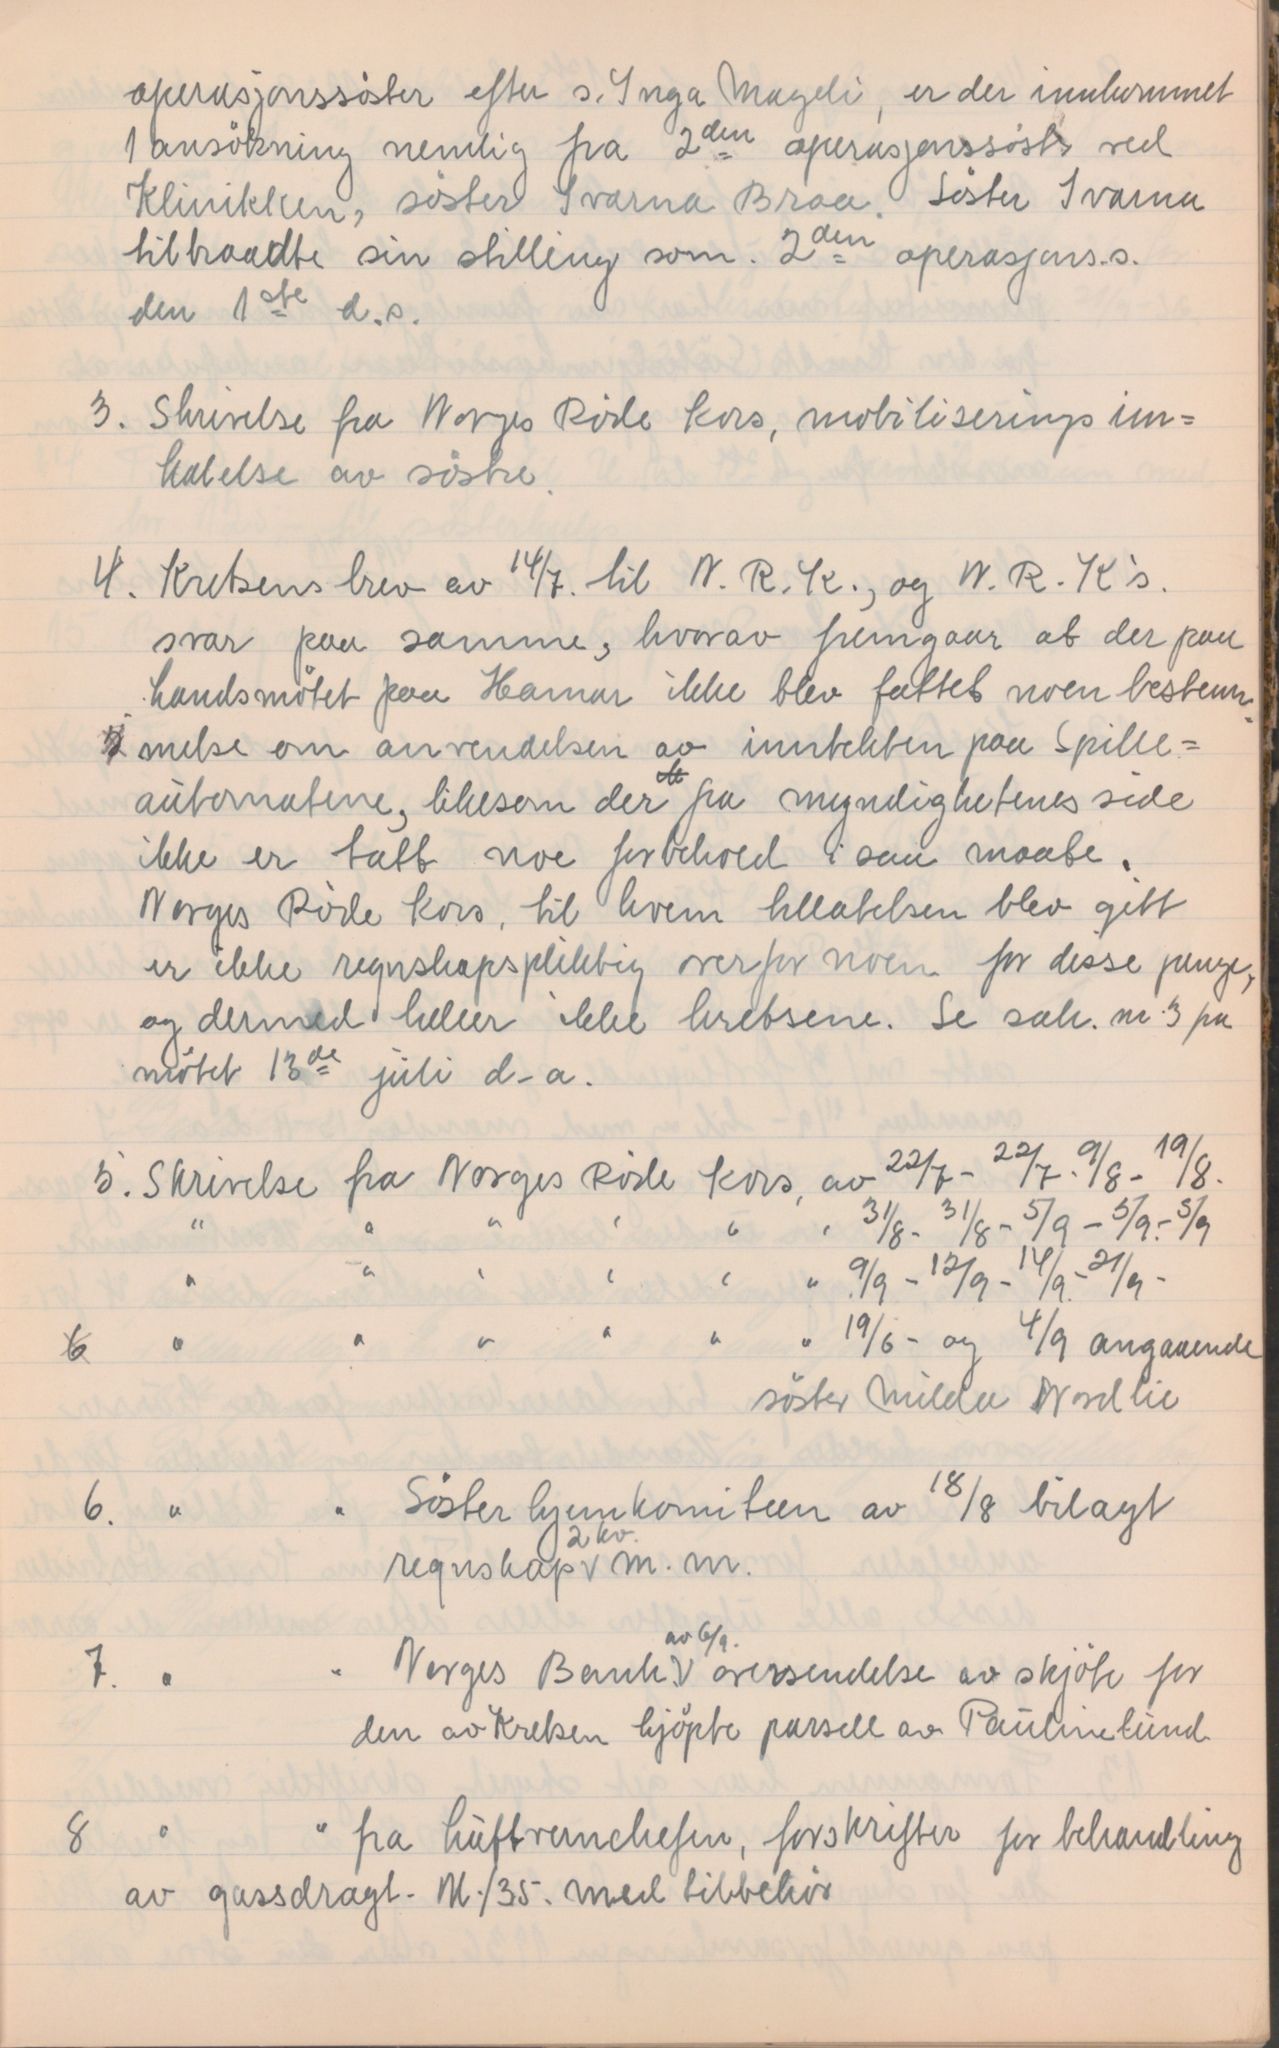 operasjonssöster efter s. Inga Mageli, er der innkommet
1 ansökning nemlig fra 2den operasjonssöster ved
Klinikken, söster Ivarna Braa. Söster Ivarna
tiltraadte sin stilling som. 2den operasjons.s.
den 1ste d.s.
3. Skrivelse fra Norges Røde Kors, mobiliserings inn=
kalelse av söstre.
4. Kretsens brev av 14/7. til N. R. K., og N. R. K's.
svar paa samme, hvorav fremgaar at der paa
landsmötet paa Hamar ikke blev fattet noen bestem-
melse om anvendelsen av inntekten paa Spille=
automatene, likesom der fra myndighetenes side
ikke er tatt noe forbehold i saa maate.
Norges Røde Kors, til hvem tillatelsen blev gitt
er ikke regnskapspliktig overfor noen for disse penge,
og dermed heller ikke kretsene. Se sak. nr. 3 fra
mötet 13de juli d-a.
5. Skrivelse fra Norges Røde Kors, av 22/7 - 22/7 - 9/8 - 19/8.
" " " " " " 31/8 - 31/8 - 5/9 - 5/9 - 5/9
" " " " " " 9/9 - 12/9 - 14/9 - 21/9 -
" " " " " " 19/6 - og 4/9 angaaende
söster Milda Nordlie
6. " " Söster hjemkomiteen av 18/8 bilagt
regnskap 2 kv. m. m.
7. " " Norges Bank av 6/9. oversendelse av skjöte for
den av Kretsen kjöpte parsell av Paulinelund
8 " " fra Luftvernchefen, forskrifter for behandling
av gassdragt - M./35. med tilbehör